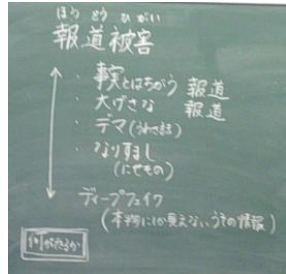 ほう どう ひがい
報道被害
・事実とはちがう 報道
・大げさな 報道
・デマ(うわさ話)
・なりすまし
(にせもの)
ディープフェイク
(本物にしか見えないうその情報)